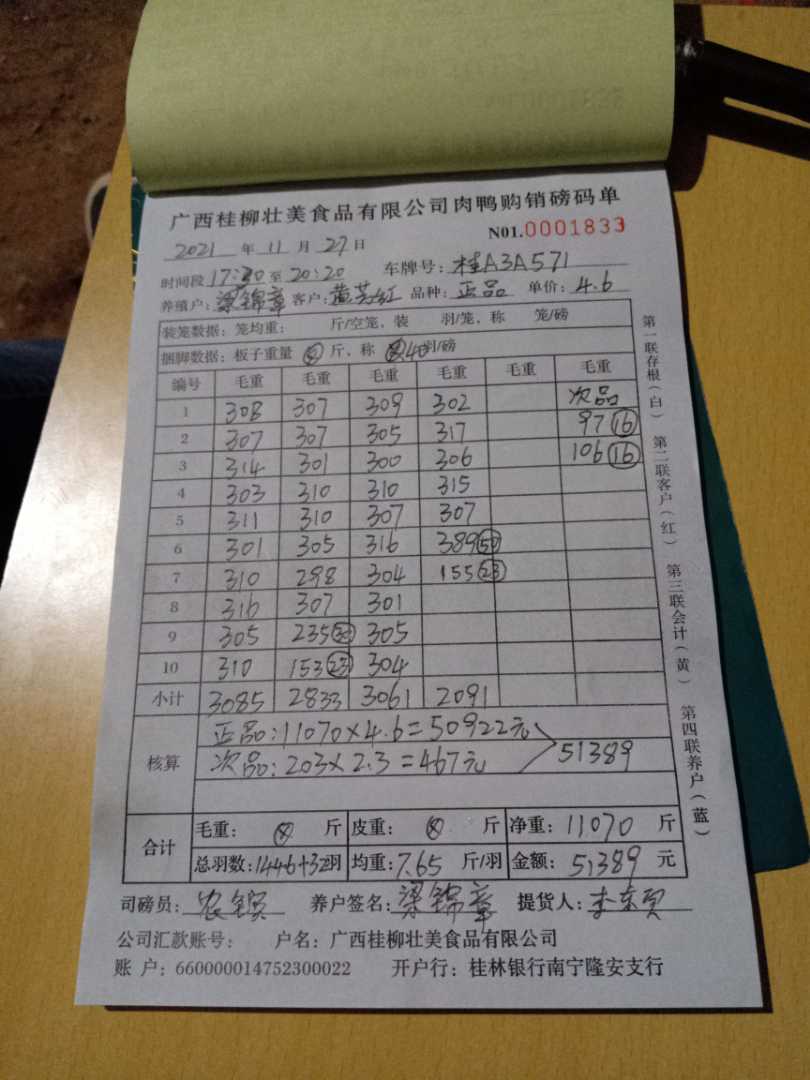 广西桂柳壮美食品有限公司肉鸭购销磅码单
N01.0001833
2021 年 11 月 27 日
时间段 17:20 至 20:20 车牌号: 桂A3A571
养殖户: 梁锦章 客户: 黄芳红 品种: 正品 单价: 4.6
装笼数据: 笼均重: 斤/空笼, 装 羽/笼, 称 笼/磅
捆脚数据: 板子重量 斤, 称 40羽/磅
编号 毛重 毛重 毛重 毛重 毛重 毛重
1 308 307 309 302 次品
2 307 307 305 317 97 16
3 314 301 300 306 106 16
4 303 310 310 315
5 311 310 307 307
6 301 305 316 389 50
7 310 298 304 155 23
8 316 307 301
9 305 235 305
10 310 153 23 304
小计 3085 2833 3061 2091
核算 正品:11070×4.6=50922元
次品:203×2.3=467元 51389
合计 毛重: 斤 皮重: 斤 净重: 11070 斤
总羽数: 1446+32羽 均重: 7.65 斤/羽 金额: 51389 元
司磅员: 养户签名: 梁锦章 提货人:
公司汇款账号: 户名: 广西桂柳壮美食品有限公司
账 户: 660000014752300022 开户行: 桂林银行南宁隆安支行
第一联存根(白) 第二联客户(红) 第三联会计(黄) 第四联养户(蓝)